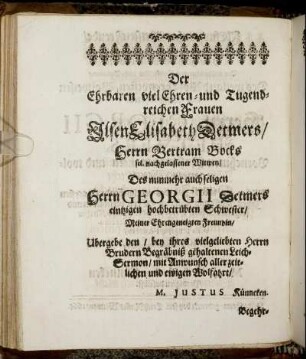 Der
Ehrbaren viel Ehren- und Tugend-
reichen Frauen
Ilsen Elisabeth Detmers/
Herrn Bertram Bocks
sel. nachgelassener Wittwen/
Des nunmehr auch seligen
Herrn GEORGII Detmers
eintzigen hochbetrübten Schwester/
Meiner Ehrngeneigten Freundin/
Ubergebe den / bey ihres vielgeliebten Herrn
Brudern Begräbniß gehaltenen Leich-
Sermon/ mit Anwunsch aller zeit-
lichen und ewigen Wolfahrt/
M. JUSTUS Künneken.
Begehr-